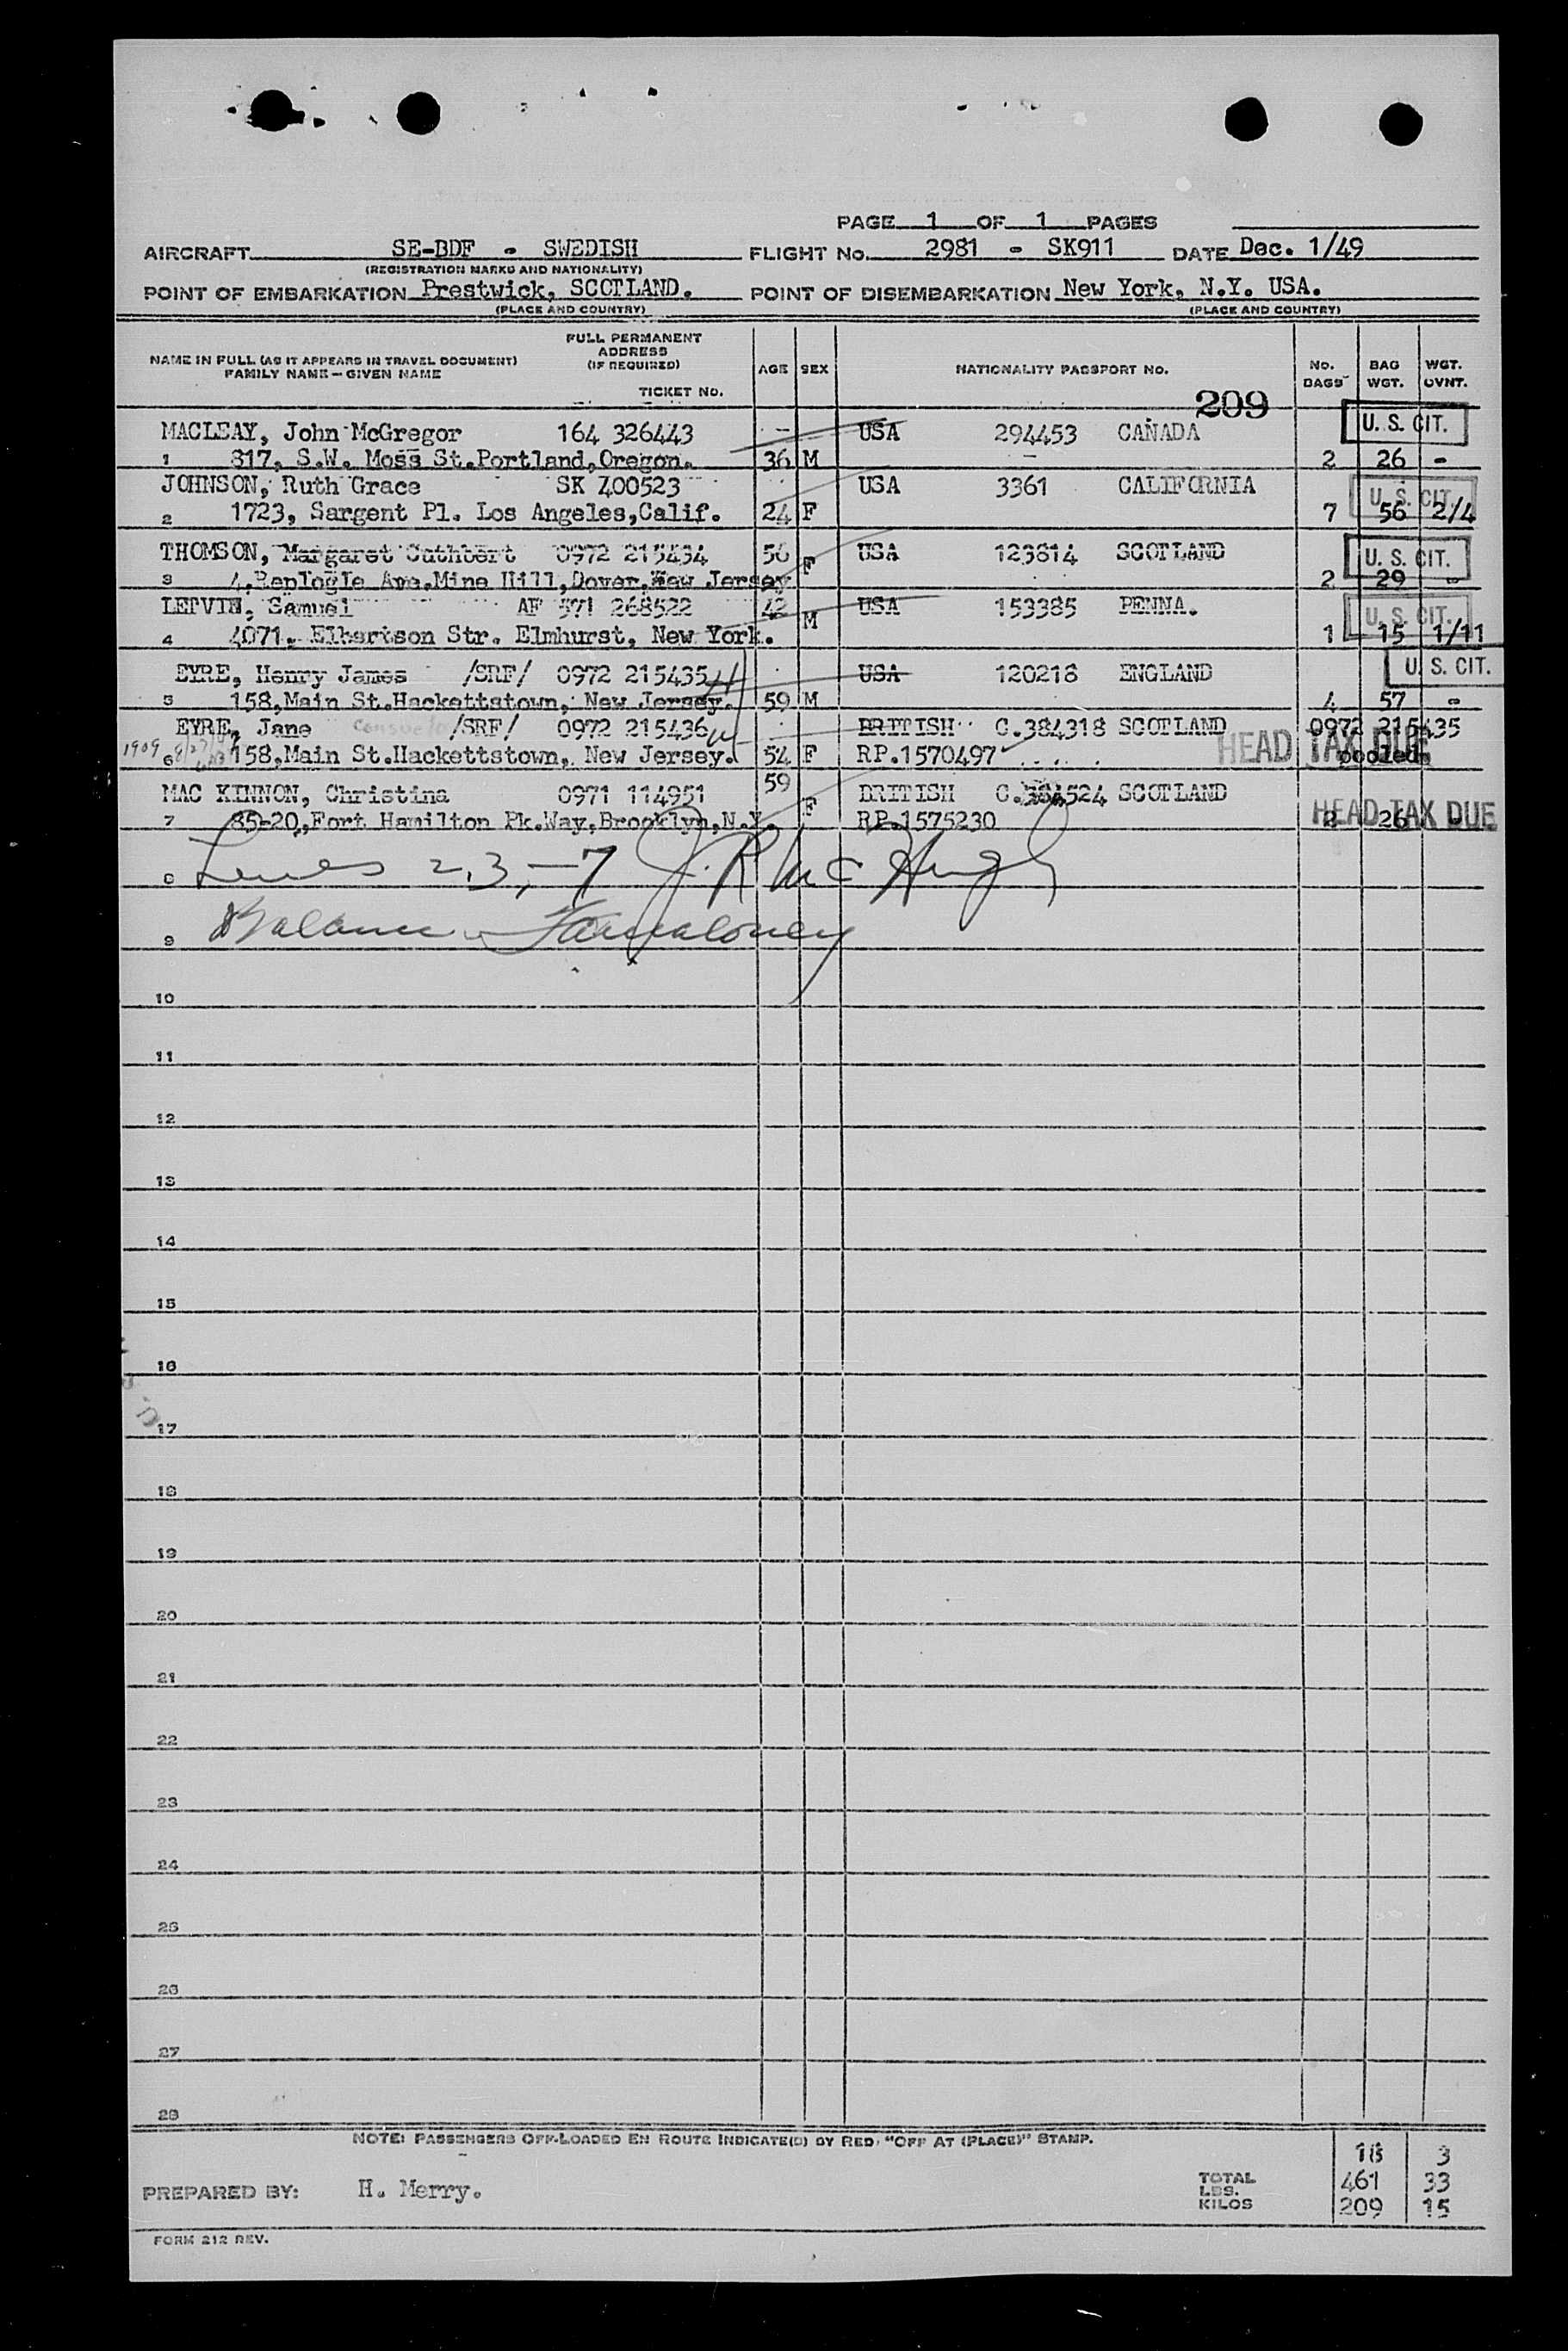 PAGE 1 OF 1 PAGES
AIRCRAFT SE-BDF - SWEDISH FLIGHT No. 2981 - SK911 DATE Dec. 1/49
(REGISTRATION MARKS AND NATIONALITY)
POINT OF EMBARKATION Prestwick, SCOTLAND. POINT OF DISEMBARKATION New York, N.Y. USA.
(PLACE AND COUNTRY) (PLACE AND COUNTRY)
FULL PERMANENT
ADDRESS
NAME IN FULL (AS IT APPEARS IN TRAVEL DOCUMENT) (IF REQUIRED) AGE SEX NATIONALITY PASSPORT NO. No. BAG WGT.
FAMILY NAME – GIVEN NAME BAGS WGT. OVNT.
TICKET No.
209
MACLEAY, John McGregor 164 326443 USA 294453 CANADA U. S. CIT.
1 817, S.W. Moss St.Portland,Oregon. 36 M 2 26 -
JOHNSON, Ruth Grace SK 400523 USA 3361 CALIFORNIA U. S. CIT.
2 1723, Sargent Pl. Los Angeles,Calif. 24 F 7 56 2/4
THOMSON, Margaret Cuthbert 0972 215434 56 F USA 123814 SCOTLAND U. S. CIT.
3 4,Replogle Ave,Mine Hill,Dover,New Jersey 2 29 -
LETVIN, Samuel AF 571 268522 42 M USA 153385 PENNA. U. S. CIT.
4 4071, Elbertson Str. Elmhurst, New York. 1 15 1/11
EYRE, Henry James /SRF/ 0972 215435 USA 120218 ENGLAND U. S. CIT.
5 158,Main St.Hackettstown, New Jersey. 59 M 4 57 -
EYRE, Jane Consuelo /SRF/ 0972 215436 BRITISH C.384318 SCOTLAND 0972 215435
1909 6 158,Main St.Hackettstown, New Jersey. 54 F RP.1570497 HEAD TAX DUE pooled.
MAC KINNON, Christina 0971 114951 59 F BRITISH SCOTLAND
7 85-20,Fort Hamilton Pk.Way,Brooklyn,N.Y. RP.1575230 2 26 - HEAD TAX DUE
8 Lines 2,3,-7 J.R McHugh
9 Balance
10
11
12
13
14
15
16
17
18
19
20
21
22
23
24
25
26
27
28
NOTE: PASSENGERS OFF-LOADED EN ROUTE INDICATE(D) BY RED, "OFF AT (PLACE)" STAMP.
18 3
TOTAL
PREPARED BY: H. Merry. LBS. 461 33
KILOS 209 15
FORM 212 REV.